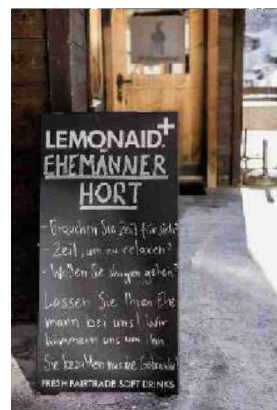 LEMONAID+
EHEMÄNNER
HORT
- Brauchen Sie Zeit für sich?
- Zeit, um zu relaxen?
- Wollen Sie shoppen gehen?
Lassen Sie Ihren Ehe
mann bei uns! Wir
kümmern uns um ihn.
Sie bezahlen nur die Getränke!
FRESH FAIRTRADE SOFT DRINKS